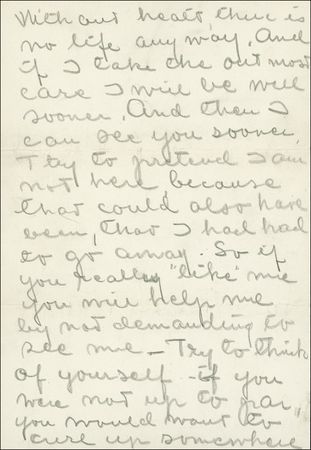 Without healt there is
no life any way. And
if I take the out most
care I will be well
sooner. And then I
can see you sooner.
Try to pretend I am
not here, because
that could also have
been, that I had had
to go away. So if
you really "like" me
you will help me
by not demanding to
see me – Try to think
of yourself – if you
were not up to par,
you would want to
cure up somewhere